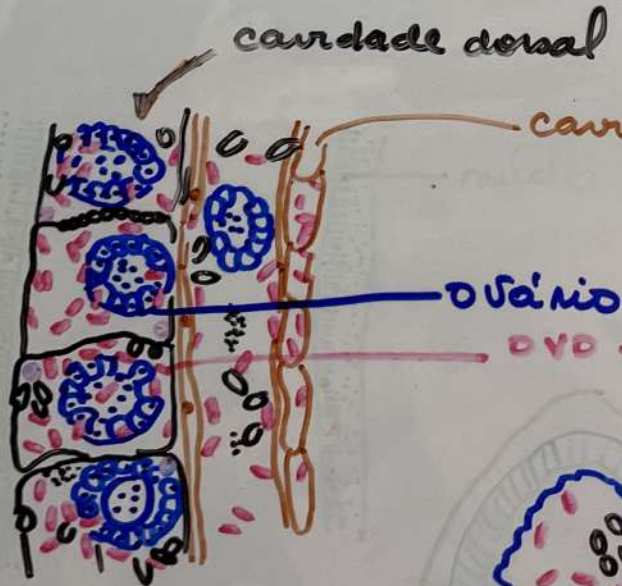 cavidade dorsal
cav
ovário
ovo